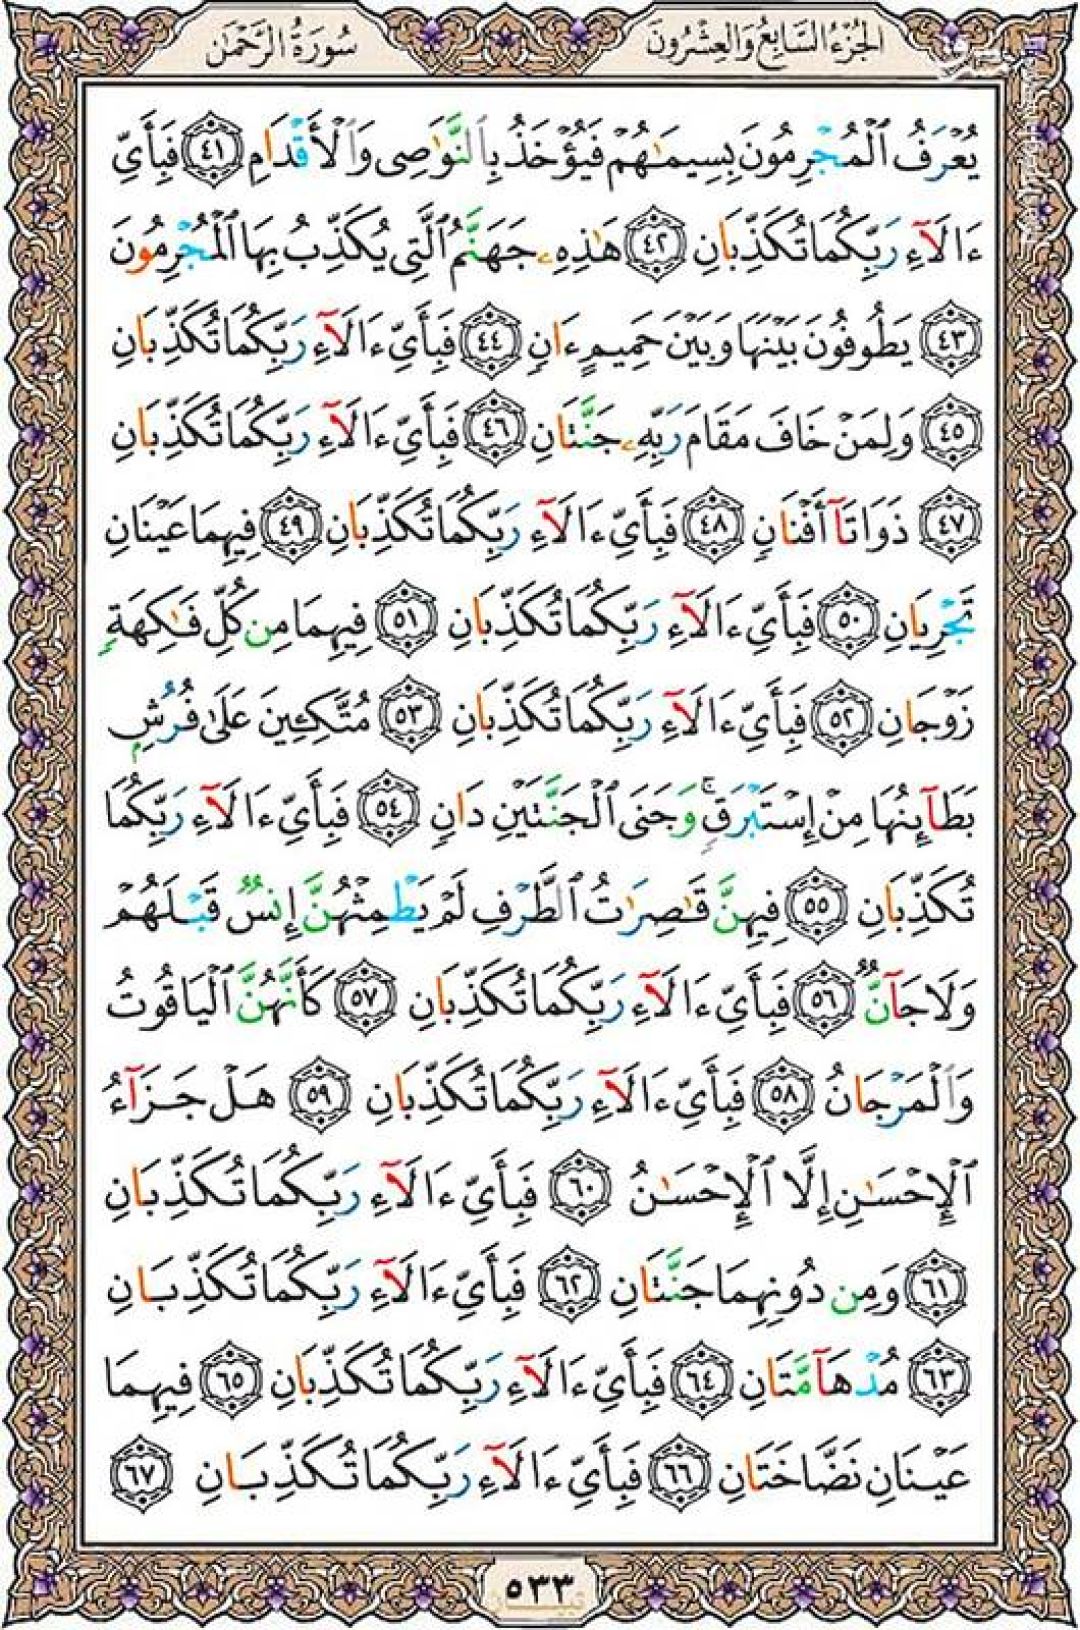 الجُزءُ السَّابِعُ وَالعِشْرُونَ
سُورَةُ الرَّحْمٰن
يُعْرَفُ ٱلْمُجْرِمُونَ بِسِيمَٰهُمْ فَيُؤْخَذُ بِٱلنَّوَٰصِى وَٱلْأَقْدَامِ ﴿٤١﴾ فَبِأَىِّ
ءَالَآءِ رَبِّكُمَا تُكَذِّبَانِ ﴿٤٢﴾ هَٰذِهِۦ جَهَنَّمُ ٱلَّتِى يُكَذِّبُ بِهَا ٱلْمُجْرِمُونَ
﴿٤٣﴾ يَطُوفُونَ بَيْنَهَا وَبَيْنَ حَمِيمٍ ءَانٍ ﴿٤٤﴾ فَبِأَىِّ ءَالَآءِ رَبِّكُمَا تُكَذِّبَانِ
﴿٤٥﴾ وَلِمَنْ خَافَ مَقَامَ رَبِّهِۦ جَنَّتَانِ ﴿٤٦﴾ فَبِأَىِّ ءَالَآءِ رَبِّكُمَا تُكَذِّبَانِ
﴿٤٧﴾ ذَوَاتَآ أَفْنَانٍ ﴿٤٨﴾ فَبِأَىِّ ءَالَآءِ رَبِّكُمَا تُكَذِّبَانِ ﴿٤٩﴾ فِيهِمَا عَيْنَانِ
تَجْرِيَانِ ﴿٥٠﴾ فَبِأَىِّ ءَالَآءِ رَبِّكُمَا تُكَذِّبَانِ ﴿٥١﴾ فِيهِمَا مِن كُلِّ فَٰكِهَةٍ
زَوْجَانِ ﴿٥٢﴾ فَبِأَىِّ ءَالَآءِ رَبِّكُمَا تُكَذِّبَانِ ﴿٥٣﴾ مُتَّكِـِٔينَ عَلَىٰ فُرُشٍ
بَطَآئِنُهَا مِنْ إِسْتَبْرَقٍ ۚ وَجَنَى ٱلْجَنَّتَيْنِ دَانٍ ﴿٥٤﴾ فَبِأَىِّ ءَالَآءِ رَبِّكُمَا
تُكَذِّبَانِ ﴿٥٥﴾ فِيهِنَّ قَٰصِرَٰتُ ٱلطَّرْفِ لَمْ يَطْمِثْهُنَّ إِنسٌ قَبْلَهُمْ
وَلَا جَآنٌّ ﴿٥٦﴾ فَبِأَىِّ ءَالَآءِ رَبِّكُمَا تُكَذِّبَانِ ﴿٥٧﴾ كَأَنَّهُنَّ ٱلْيَاقُوتُ
وَٱلْمَرْجَانُ ﴿٥٨﴾ فَبِأَىِّ ءَالَآءِ رَبِّكُمَا تُكَذِّبَانِ ﴿٥٩﴾ هَلْ جَزَآءُ
ٱلْإِحْسَٰنِ إِلَّا ٱلْإِحْسَٰنُ ﴿٦٠﴾ فَبِأَىِّ ءَالَآءِ رَبِّكُمَا تُكَذِّبَانِ
﴿٦١﴾ وَمِن دُونِهِمَا جَنَّتَانِ ﴿٦٢﴾ فَبِأَىِّ ءَالَآءِ رَبِّكُمَا تُكَذِّبَانِ
﴿٦٣﴾ مُدْهَآمَّتَانِ ﴿٦٤﴾ فَبِأَىِّ ءَالَآءِ رَبِّكُمَا تُكَذِّبَانِ ﴿٦٥﴾ فِيهِمَا
عَيْنَانِ نَضَّاخَتَانِ ﴿٦٦﴾ فَبِأَىِّ ءَالَآءِ رَبِّكُمَا تُكَذِّبَانِ ﴿٦٧﴾
٥٣٣